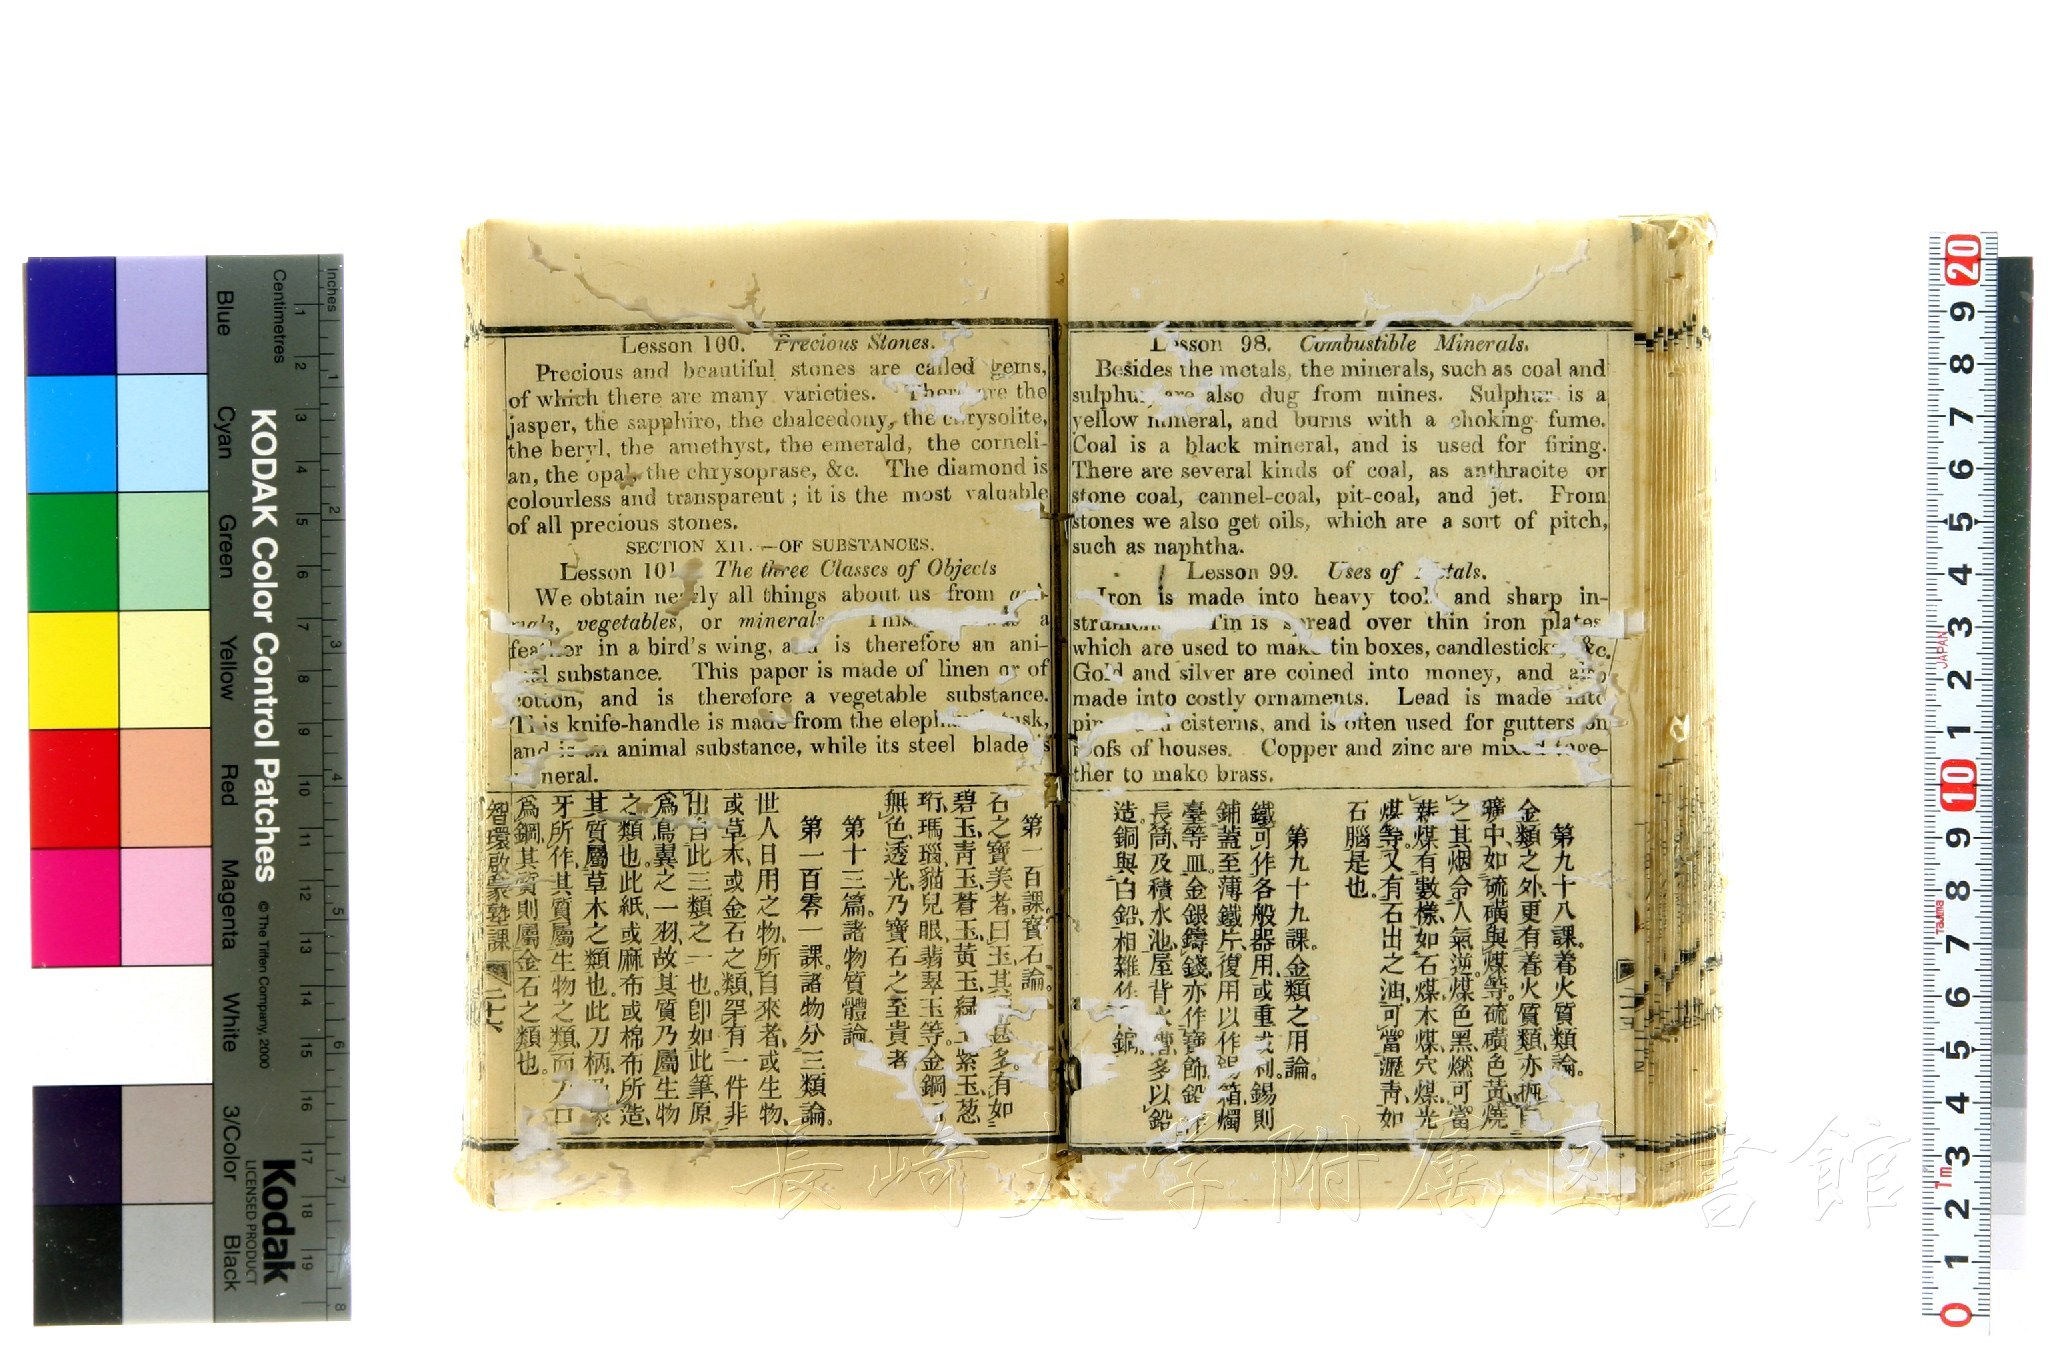 Lesson 98. Combustible Minerals.
Besides the metals, the minerals, such as coal and
sulphur, are also dug from mines. Sulphur is a
yellow mineral, and burns with a choking fume.
Coal is a black mineral, and is used for firing.
There are several kinds of coal, as anthracite or
stone coal, cannel-coal, pit-coal, and jet. From
stones we also get oils, which are a sort of pitch,
such as naphtha.
Lesson 99. Uses of Metals.
Iron is made into heavy tools and sharp in-
Tin is spread over thin iron plates
which are used to make tin boxes, candlesticks, &c.
Gold and silver are coined into money, and also
made into costly ornaments. Lead is made into
cisterns, and is often used for gutters on
roofs of houses. Copper and zinc are mixed toge-
ther to make brass.
第九十八課。着火質類論。
金類之外、更有着火質類、亦
礦中、如硫磺與煤等。硫磺色黃、燒
之其烟令人氣逆。煤色黑、燃可當
薪。煤有數樣、如石煤、木煤、穴煤、光
煤等。又有石出之油、可當瀝青、如
石腦是也。
第九十九課。金類之用論。
鐵可作各般器用、或重或利。錫則
鋪蓋至薄鐵片、復用以作錫箱、燭
臺等皿。金銀鑄錢、亦作寶飾。鉛作
長筒、及積水池、屋背水槽、多以鉛
造。銅與白鉛、相雜
Lesson 100. Precious Stones.
Precious and beautiful stones are called gems,
of which there are many varieties. There are the
jasper, the sapphire, the chalcedony, the chrysolite,
the beryl, the amethyst, the emerald, the corneli-
an, the opal, the chrysoprase, &c. The diamond is
colourless and transparent; it is the most valuable
of all precious stones.
SECTION XII.—OF SUBSTANCES.
Lesson 101. The three Classes of Objects
We obtain nearly all things about us from ani-
mals, vegetables, or minerals. This a
feather in a bird's wing, and is therefore an ani-
mal substance. This paper is made of linen or of
cotton, and is therefore a vegetable substance.
This knife-handle is made from the elephant's tusk,
and is an animal substance, while its steel blade is
mineral.
第一百課。寶石論。
石之寶美者、曰玉、其 甚多。有如
碧玉、青玉、蒼玉、黃玉、綠玉、紫玉、葱
珩、瑪瑙、貓兒眼、翡翠玉等。金鋼
無色透光、乃寶石之至貴者
第十三篇。諸物質體論。
第一百零一課。諸物分三類論。
世人日用之物、所自來者、或生物、
或草木、或金石之類、罕有一件非
出自此三類之一也。卽如此筆、原
爲鳥翼之一羽、故其質乃屬生物
之類也。此紙、或麻布或棉布所造、
其質屬草木之類也。此刀柄、乃象
牙所作、其質屬生物之類、而刀口
爲鋼、其質則屬金石之類也。
智環啟蒙塾課
二十六
KODAK Color Control Patches
© The Tiffen Company, 2000
Kodak
LICENSED PRODUCT
Inches
Centimetres
Blue
Cyan
Green
Yellow
Red
Magenta
White
3/Color
Black
1 2 3 4 5 6 7 8 9 10 11 12 13 14 15 16 17 18 19
1 2 3 4 5 6 7 8
20 9 8 7 6 5 4 3 2 1 10 9 8 7 6 5 4 3 2 1 0
JAPAN
1m
長崎大学附属図書館